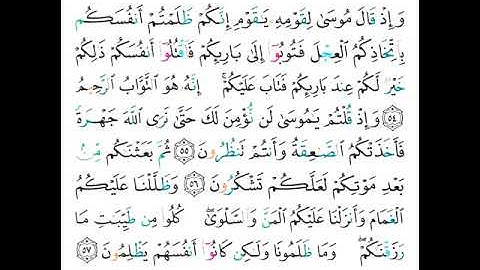 وَإِذْ قَالَ مُوسَىٰ لِقَوْمِهِۦ يَٰقَوْمِ إِنَّكُمْ ظَلَمْتُمْ أَنفُسَكُم
بِٱتِّخَاذِكُمُ ٱلْعِجْلَ فَتُوبُوٓا۟ إِلَىٰ بَارِئِكُمْ فَٱقْتُلُوٓا۟ أَنفُسَكُمْ ذَٰلِكُمْ
خَيْرٌ لَّكُمْ عِندَ بَارِئِكُمْ فَتَابَ عَلَيْكُمْ ۚ إِنَّهُۥ هُوَ ٱلتَّوَّابُ ٱلرَّحِيمُ
٥٤ وَإِذْ قُلْتُمْ يَٰمُوسَىٰ لَن نُّؤْمِنَ لَكَ حَتَّىٰ نَرَى ٱللَّهَ جَهْرَةً
فَأَخَذَتْكُمُ ٱلصَّٰعِقَةُ وَأَنتُمْ تَنظُرُونَ ٥٥ ثُمَّ بَعَثْنَٰكُم مِّنۢ
بَعْدِ مَوْتِكُمْ لَعَلَّكُمْ تَشْكُرُونَ ٥٦ وَظَلَّلْنَا عَلَيْكُمُ
ٱلْغَمَامَ وَأَنزَلْنَا عَلَيْكُمُ ٱلْمَنَّ وَٱلسَّلْوَىٰ ۖ كُلُوا۟ مِن طَيِّبَٰتِ مَا
رَزَقْنَٰكُمْ ۖ وَمَا ظَلَمُونَا وَلَٰكِن كَانُوٓا۟ أَنفُسَهُمْ يَظْلِمُونَ ٥٧